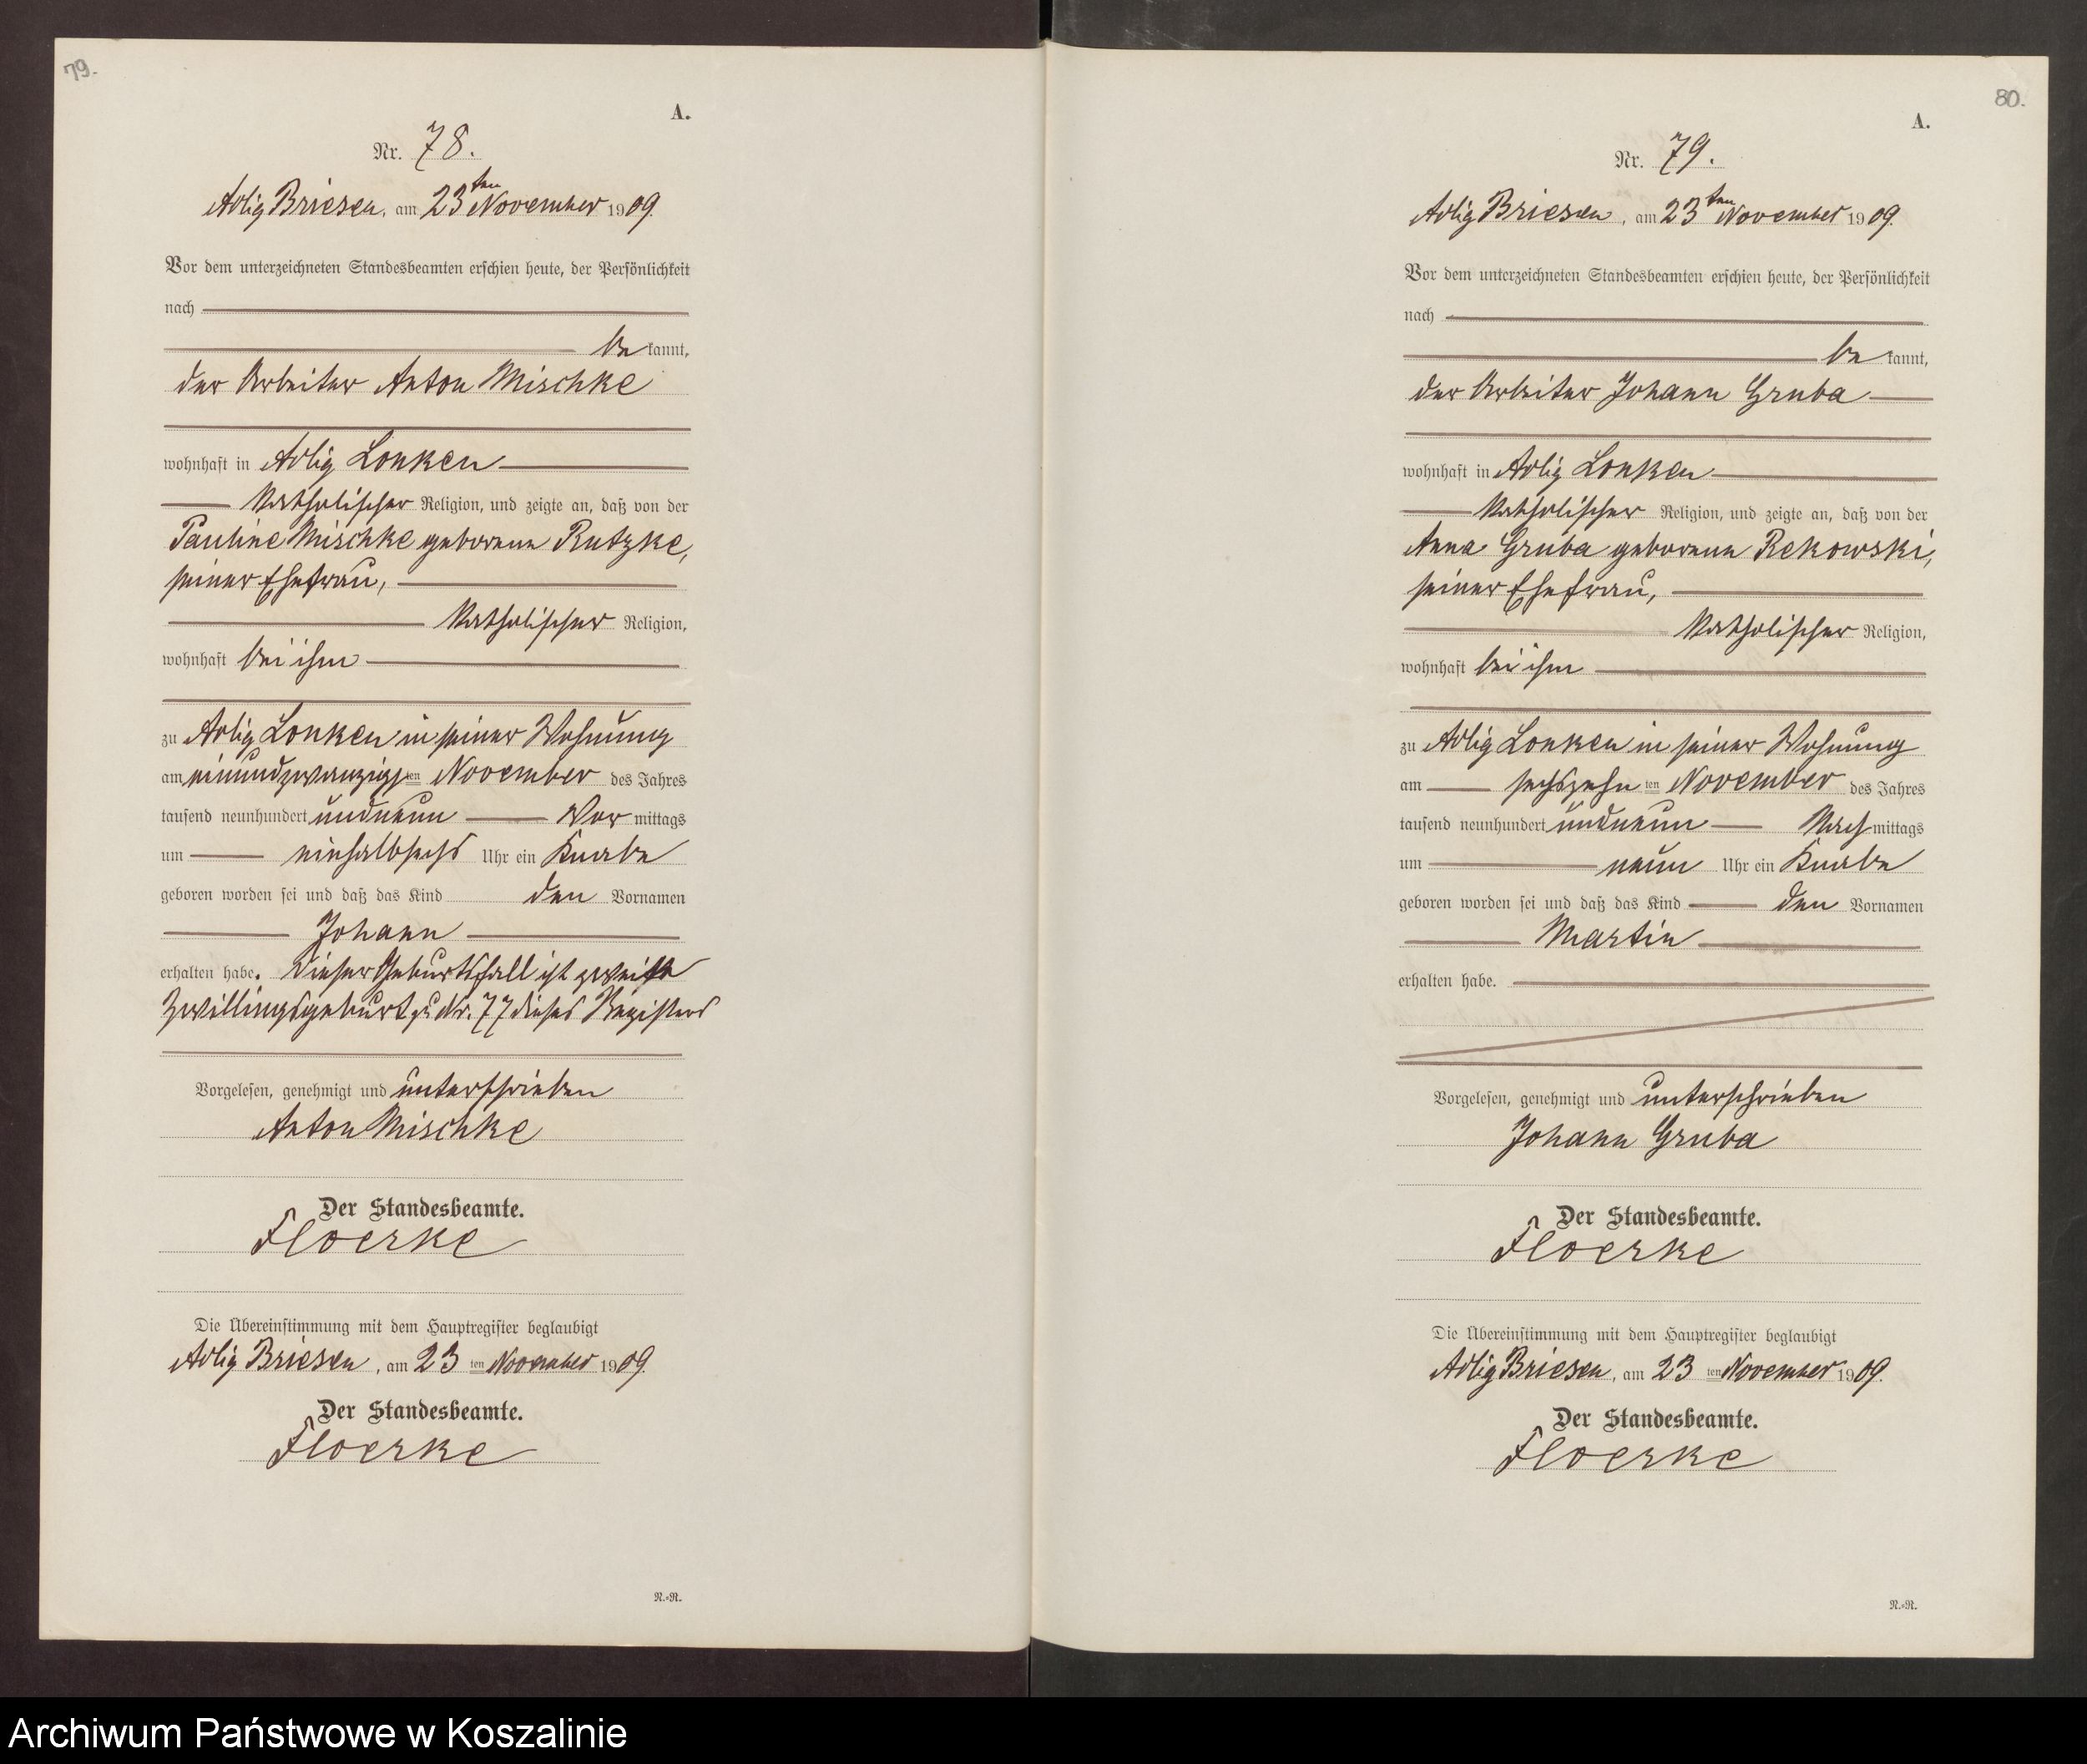 79.
A.
Nr. 78.
Adlig Briesen, am 23ten November 1909.
Vor dem unterzeichneten Standesbeamten erschien heute, der Persönlichkeit
nach
be kannt,
der Arbeiter Anton Mischke
wohnhaft in Adlig Lonken
katholischer Religion, und zeigte an, daß von der
Pauline Mischke geborene Rutzke,
seiner Ehefrau,
katholischer Religion,
wohnhaft bei ihm
zu Adlig Lonken in seiner Wohnung
am einundzwanzigsten November des Jahres
tausend neunhundert undneun Vor mittags
um einhalbsechs Uhr ein Knabe
geboren worden sei und daß das Kind den Vornamen
Johann
erhalten habe. Dieser Geburtsfall ist zweite
Zwillingsgeburt zu Nr. 77 dieses Registers
Vorgelesen, genehmigt und unterschrieben
Anton Mischke
Der Standesbeamte.
Floerke
Die Übereinstimmung mit dem Hauptregister beglaubigt
Adlig Briesen, am 23 ten November 1909.
Der Standesbeamte.
Floerke
N.=R.
80.
A.
Nr. 79.
Adlig Briesen, am 23ten November 1909.
Vor dem unterzeichneten Standesbeamten erschien heute, der Persönlichkeit
nach
be kannt,
der Arbeiter Johann Gruba
wohnhaft in Adlig Lonken
katholischer Religion, und zeigte an, daß von der
Anna Gruba geborene Rekowski,
seiner Ehefrau,
katholischer Religion,
wohnhaft bei ihm
zu Adlig Lonken in seiner Wohnung
am sechszehn ten November des Jahres
tausend neunhundert undneun Nach mittags
um neun Uhr ein Knabe
geboren worden sei und daß das Kind den Vornamen
Martin
erhalten habe.
Vorgelesen, genehmigt und unterschrieben
Johann Gruba
Der Standesbeamte.
Floerke
Die Übereinstimmung mit dem Hauptregister beglaubigt
Adlig Briesen, am 23 ten November 1909.
Der Standesbeamte.
Floerke
N.=R.
Archiwum Państwowe w Koszalinie